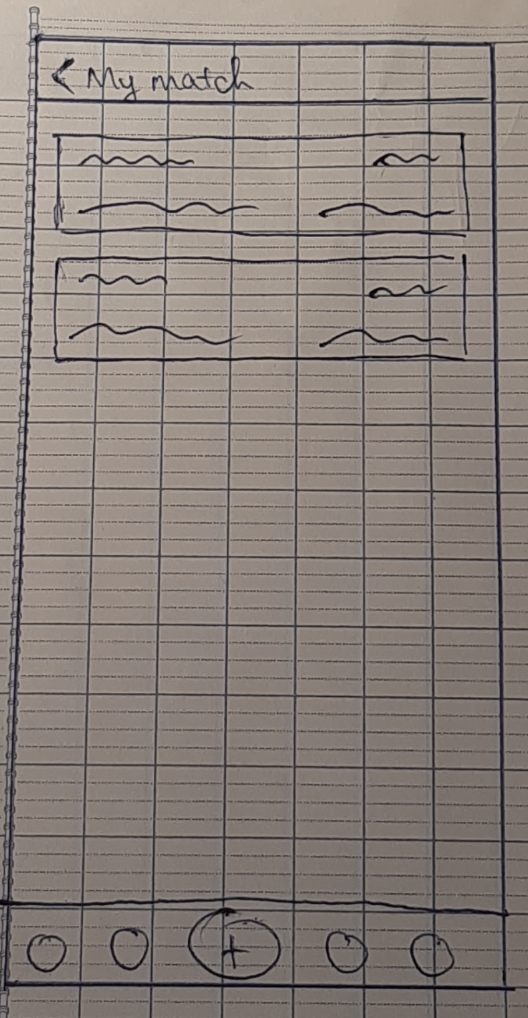 < My match
+